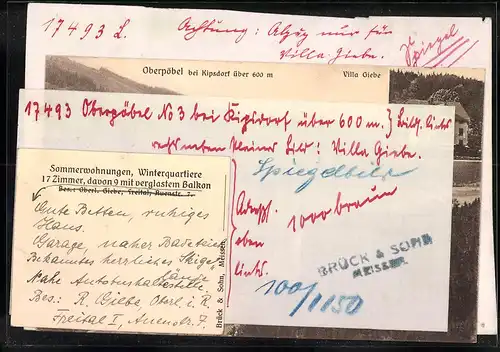 17493 L. Achtung: Abzug nur für
Villa Giebe.
Spiegel
Oberpöbel bei Kipsdorf über 600 m Villa Giebe
17493 Oberpöbel No 3 bei Kipsdorf über 600 m. } Bild. links
rechts neben kleiner Bild: Villa Giebe.
Spiegelbild
1000 braun
oben
links.
BRÜCK & SOHN
MEISSEN
100/1150
Sommerwohnungen, Winterquartiere
17 Zimmer, davon 9 mit verglastem Balkon
Bes.: Oberl. Giebe, Freital, Auenstr. 7.
Gute Betten, ruhiges
Haus.
Garage, naher Badeteich
Bekanntes herrliches Skige-
lände
Nähe Autobushaltestelle.
Bes: R. Giebe, Oberl. i. R.
Freital I, Auenstr. 7.
Brück & Sohn, Meissen.